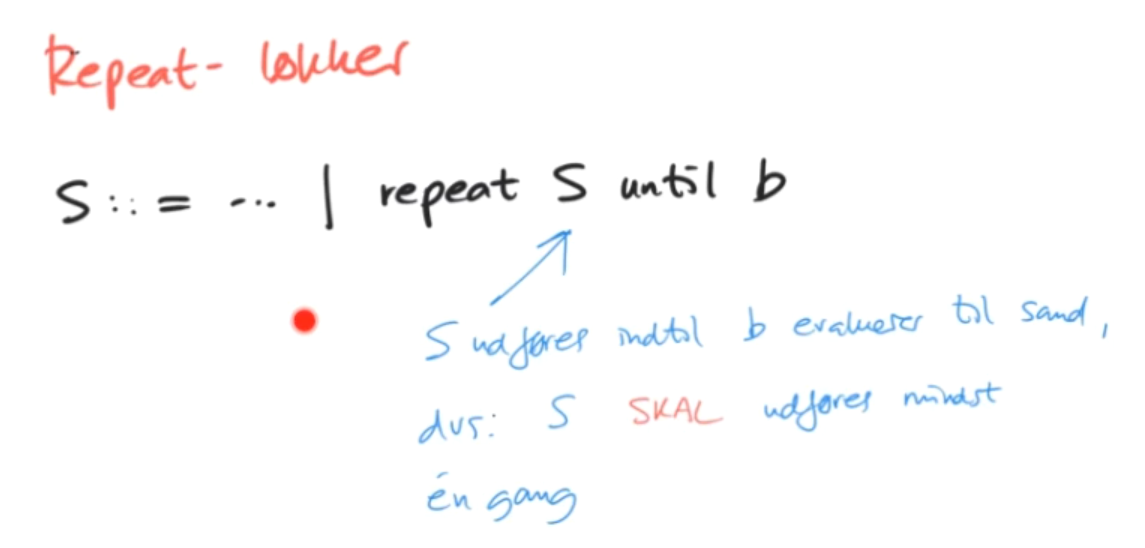 Repeat-løkker
S ::= ... | repeat S until b
S udføres indtil b evaluerer til sand,
dvs: S SKAL udføres mindst
én gang